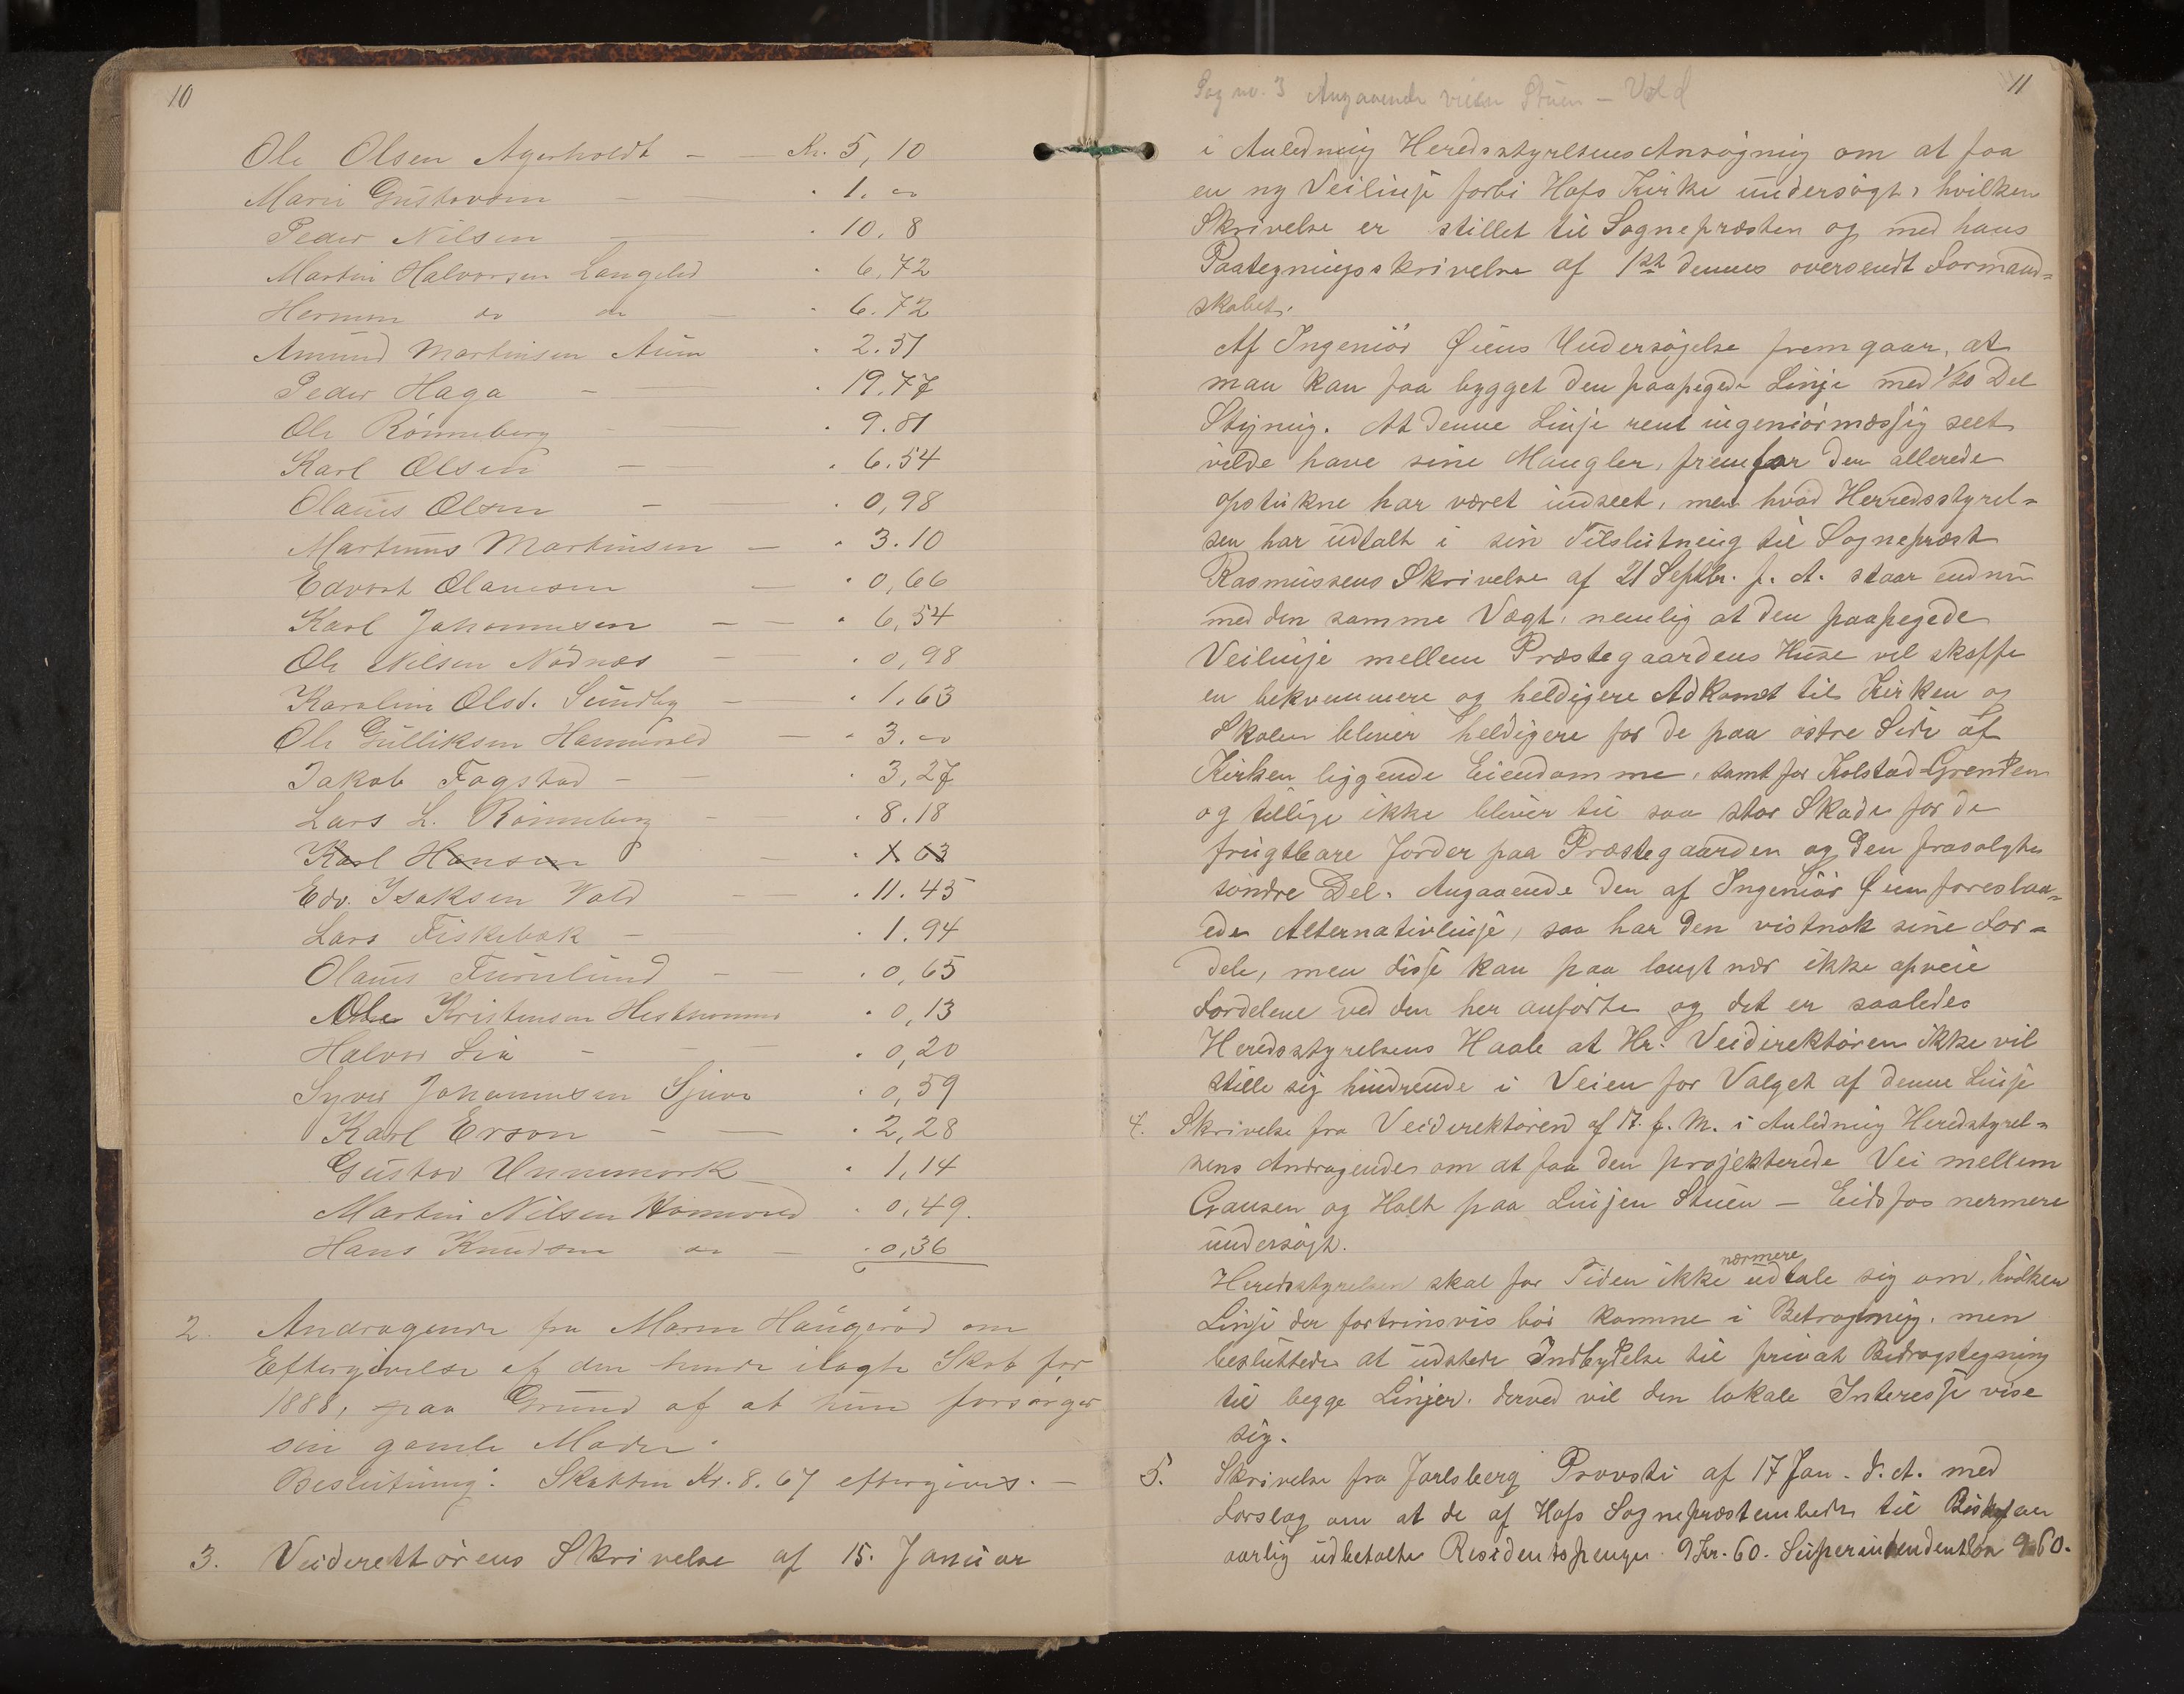 10
Ole Olsen Agerholdt - - Kr. 5,10
Marie Gustavsen - " 1.00
Peder Nilsen " 10.8
Martin Halvorsen Langelid " 6,72
Herman do do - " 6.72
Amund Martinsen Aun " 2.51
Peder Haga - " 19.77
Ole Rönneberg - " 9.81
Karl Olsen - " 6.54
Olaus Olsen - " 0,98
Martinus Martinsen - " 3.10
Edvart Olaussen - " 0,66
Karl Johannesen - - " 6,54
Ole Nilsen Nödnæs - " 0,98
Karoline Olsd. Sundby - " 1.63
Ole Gulliksen Hannevold - " 3.00
Jakob Fagstad - - " 3,27
Lars L. Rönneberg - " 8.18
Karl Hansen - " 1.63
Edv. Isaksen Vold - " 11.45
Lars Fiskebæk - " 1.94
Olaus Furulund - - " 0,65
Ole Kristensen " 0,13
Halvor Lia - - " 0,20
Syver Johannesen " 0,59
Karl Erson - - " 2,28
Gustav Unnemork " 1,14
Martin Nilsen " 0,49.
Hans Knudsen do - " 0,36
2. Andragende fra Maren Haugeröd om
Eftergivelse af den hende ilagte Skat for
1888, paa Grund af at hun forsörger
sin gamle Moder.
Beslutning: Skatten Kr. 8.67 eftergives. -
3. Veidirektörens Skrivelse af 15. Januar
11
Sag no. 3 Angaaende veien Stuen - Vold
i Anledning Heredsstyrelsens Ansögning om at faa
en ny Veilinje forbi Hofs Kirke undersögt, hvilken
Skrivelse er stillet til Sognepræsten og med hans
Paategningsskrivelse af 1ste dennes oversendt Formand=
skabet.
Af Ingeniör Øiens Undersögelse fremgaar, at
man kan faa bygget den paapegede Linje med 1/20 Del
Stigning. At denne Linje rent ingeniörmæssig seet
vilde have sine Mangler, fremfor den allerede
opstukne har været indseet, men hvad Herredsstyrel=
sen har udtalt i sin Tilslutning til Sognepræst
Rasmussens Skrivelse af 21 Septbr. f. A. staar endnu
med den samme Vægt, nemlig at den paapegede
Veilinje mellem Præstegaardens Huse vil skaffe
en bekvemmere og heldigere Adkomst til Kirken og
Skolen bliver heldigere for de paa östre Side af
Kirken liggende Eiendomme, samt for Kolstad-Grenden
og tillige ikke bliver til saa stor Skade for de
frugtbare Jorder paa Præstegaarden og den frasolgte
söndre Del. Angaaende den af Ingeniör Øien foreslaa=
ede Alternativlinje, saa har den vistnok sine For=
dele, men disse kan paa langt nær ikke opveie
Fordelene ved den her anförte og det er saaledes
Heredsstyrelsens Haab at Hr. Veidirektören ikke vil
stille sig hindrende i Veien for Valget af denne Linje
4. Skrivelse fra Veidirektören af 17. f. M. i Anledning Heredstyrel=
sens Andragende om at faa den projekterede Vei mellem
Grausen og Holt paa Linjen Stuen - Eidsfos nermere
undersögt.
Heredsstyrelsen skal for Tiden ikke nærmere udtale sig om, hvilken
Linje der fortrinsvis bör komme i Betragtning, men
besluttede at udstede Indbydelse til privat Bidragstegning
til begge Linjer, derved vil den lokale Interesse vise
sig.
5. Skrivelse fra Jarlsberg Provsti af 17 Jan. d. A. med
Forslag om at de af Hofs Sognepræstembede til Biskopen
aarlig udbetalte Residentspenge 9 Kr. 60. Superintendentlön 9 60.